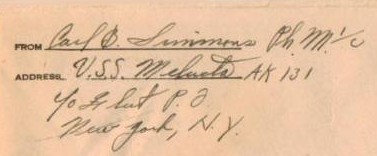 FROM Carl B. Simmons Ph. M. 1/c
ADDRESS U.S.S. Melucta AK 131
℅ Fleet P.O.
New York, N.Y.